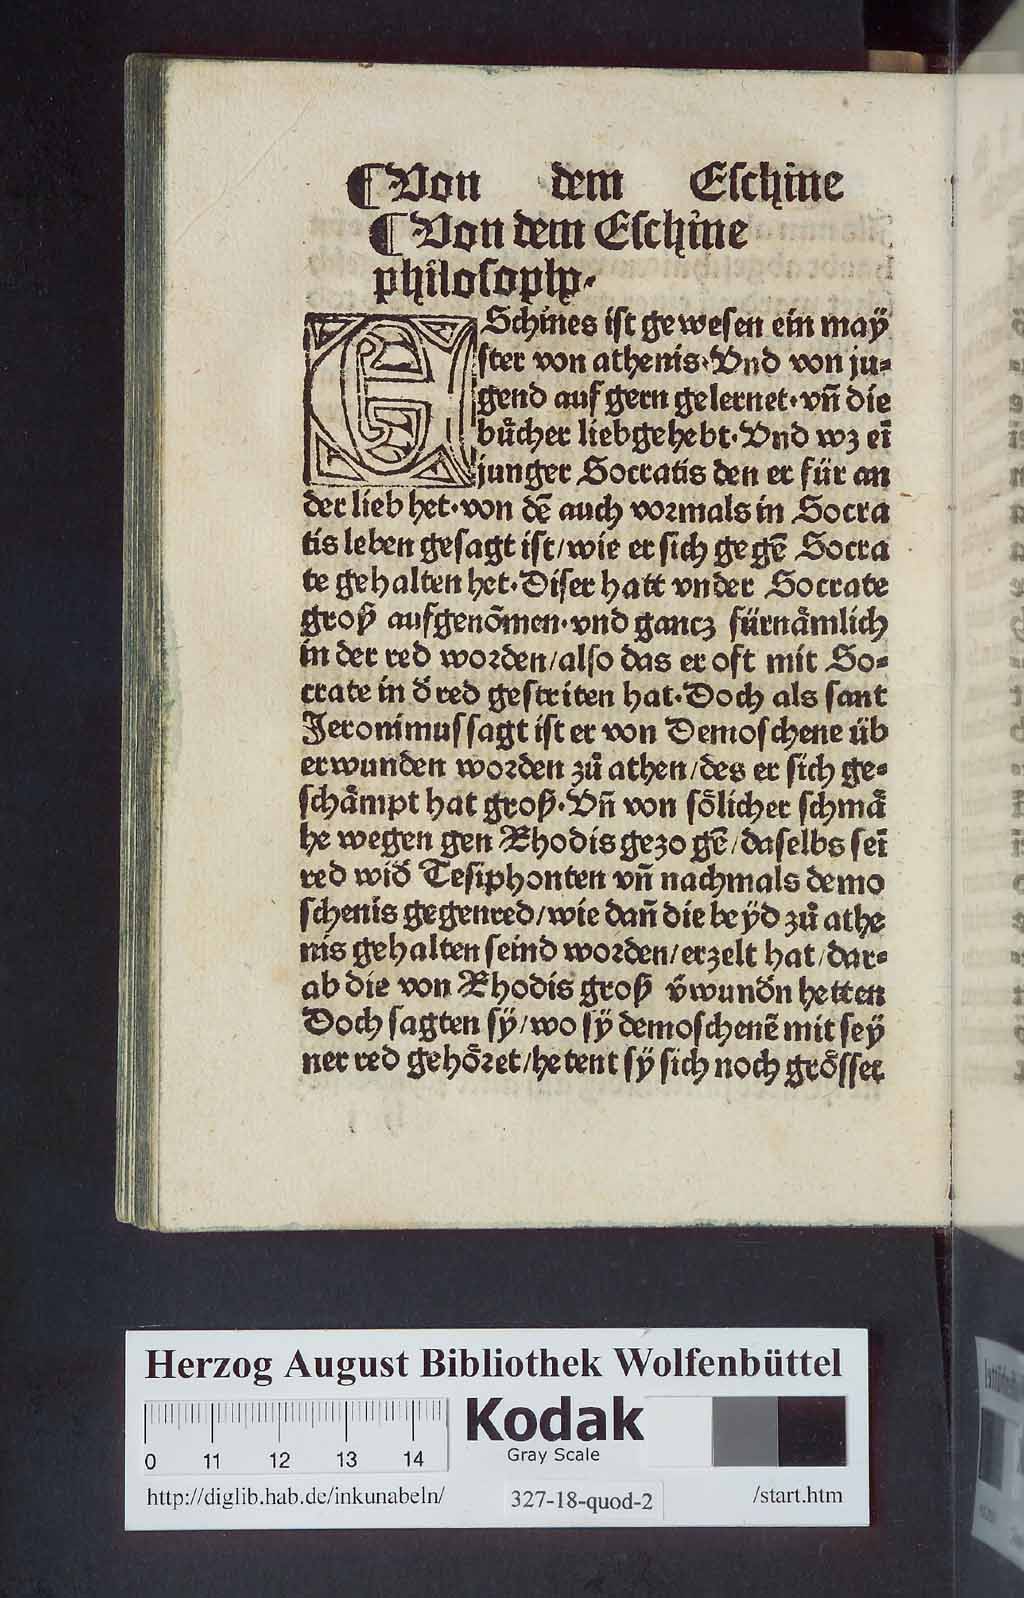 ¶Von dem Eschine
¶Von dem Eschine
philosopho.
ESchines ist gewesen ein maÿ
ster von athenis·Vnd von ju⸗
gend auf gern gelernet·vn̄ die
bůcher liebgehebt·Vnd wz eī
junger Socratis den er für an
der lieb het·von dē auch vormals in Socra
tis leben gesagt ist/wie er sich gegē Socra
te gehalten het·Diser hatt vnder Socrate
groß aufgenōmen·vnd gancz fürnåmlich
in der red worden/also das er oft mit So⸗
crate in d̄ red gestriten hat·Doch als sant
Jeronimus sagt ist er von Demoschene üb
erwunden worden zů athen/des er sich ge⸗
schåmpt hat groß·Vn̄ von sőlicher schmå
he wegen gen Rhodis gezogē/daselbs seī
red wid̄ Tesiphonten vn̄ nachmals demo
schenis gegenred/wie dan̄ die beÿd zů athe
nis gehalten seind worden/erzelt hat/dar⸗
ab die von Rhodis groß v̄wund̄n hetten
Doch sagten sÿ/wo sÿ demoschenē mit seÿ
ner red gehőret/hetent sÿ sich noch grősser
Herzog August Bibliothek Wolfenbüttel
0 11 12 13 14
Kodak
Gray Scale
http://diglib.hab.de/inkunabeln/ 327-18-quod-2 /start.htm